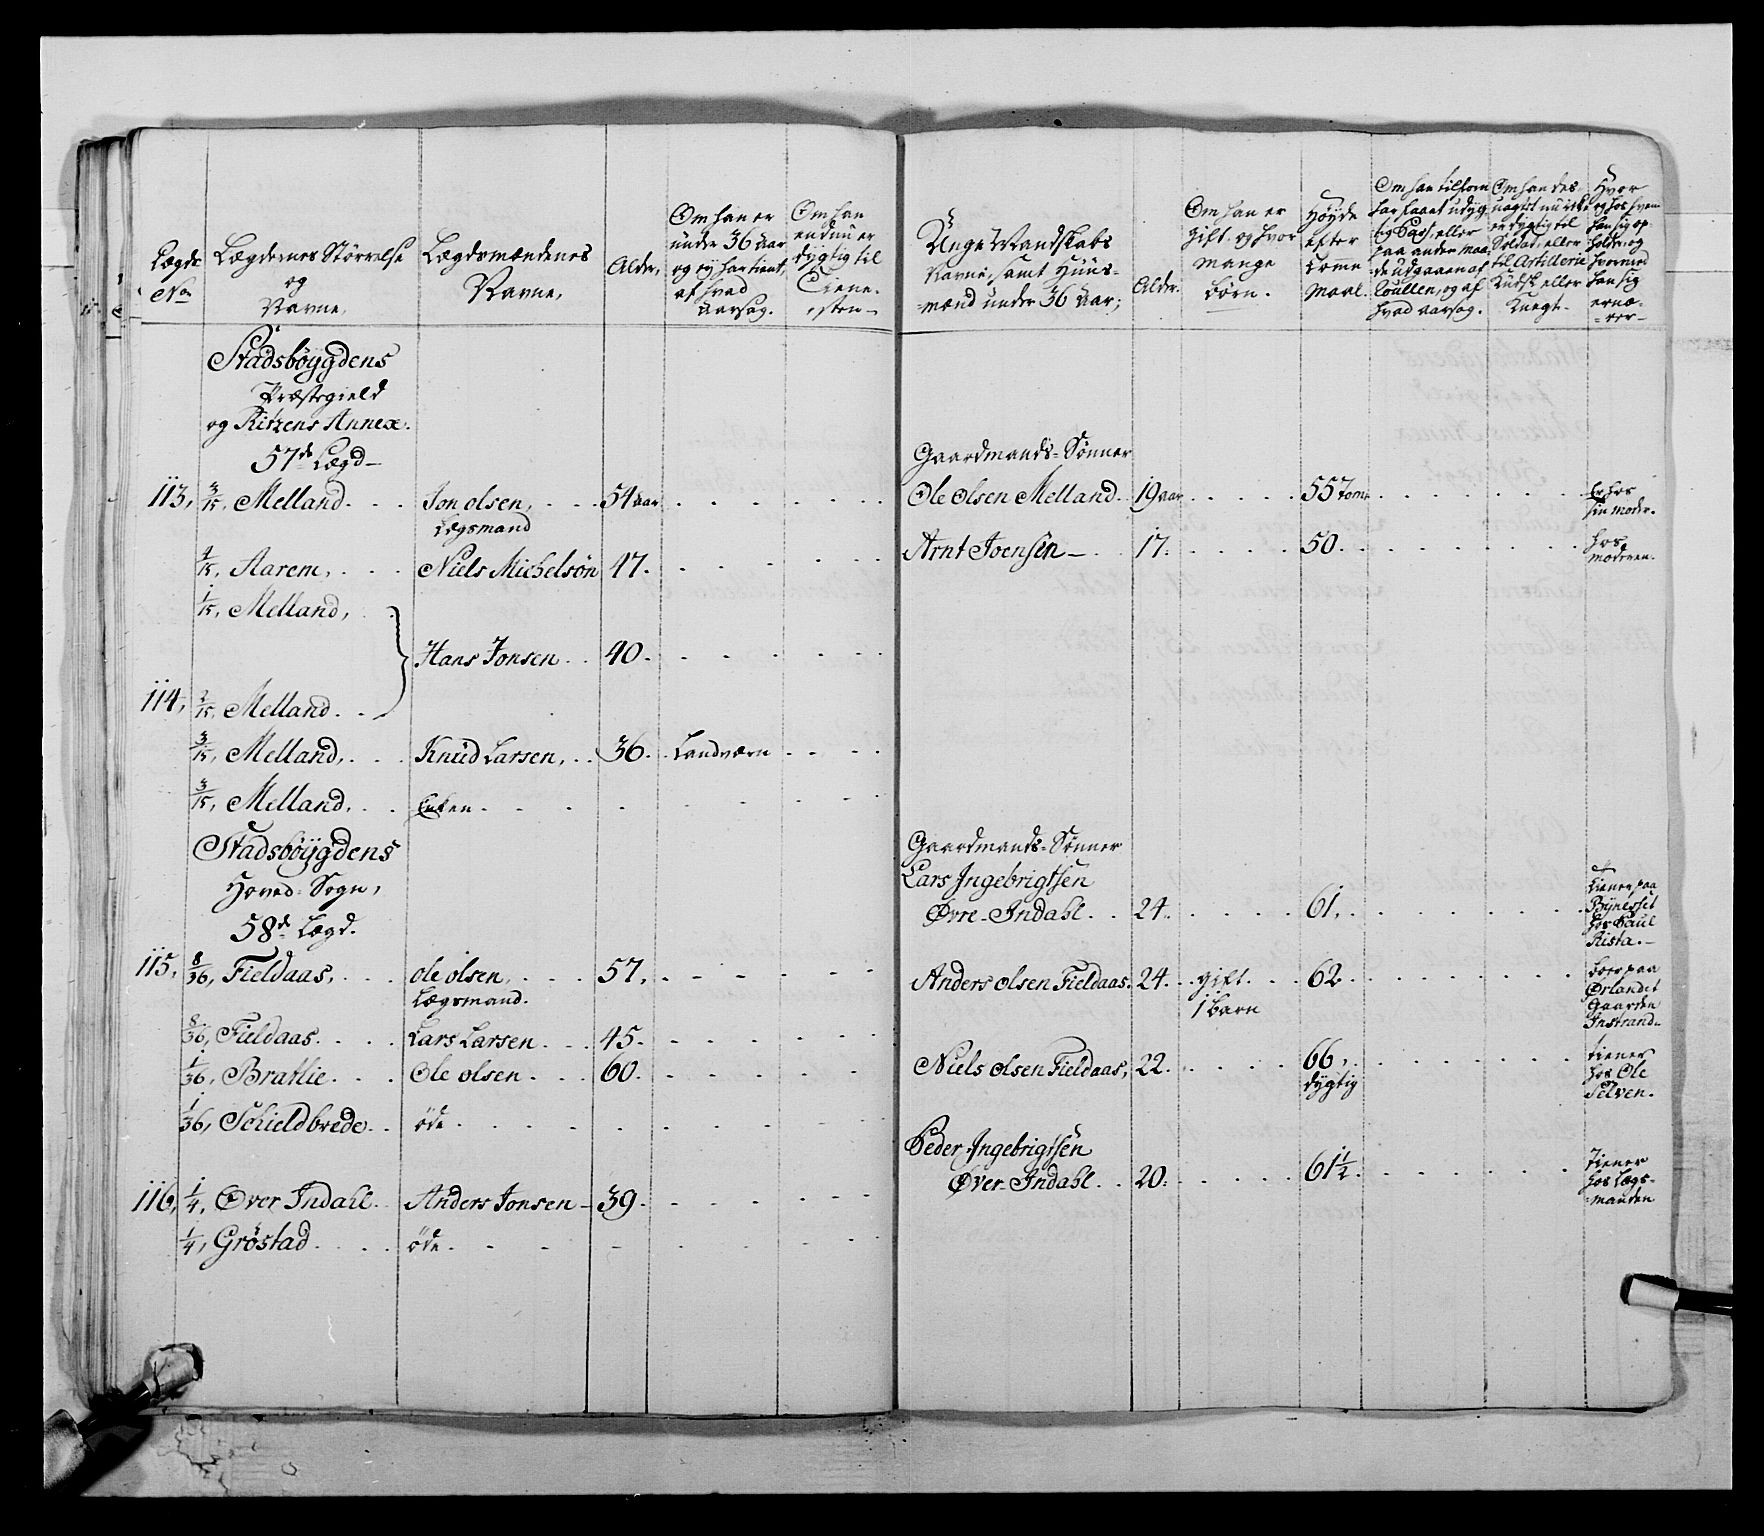 Lægds No
Lægdernes Störrelse og Navne,
Lægdsmændenes Navne,
Alder,
Om han er under 36 aar og ey har tient, af hvad Aarsag.
Om han endnu er dygtig til Tienesten
Stadsböygdens
Præstegield
og Ritzens Annex.
57de Lægd
113, 3/15, Melland. Jon olsen, 54 aar
Lægsmand
4/15, Aarem, Niels Michelsön 47.
1/15, Melland,
Hans Jonsen 40.
114, 2/15, Melland.
3/15, Melland, Knud Larsen, 36. Landværn
3/15, Melland, Enken
Stadsböygdens
Hoved-Sogn,
58de Lægd.
115, 8/36, Fieldaas, ole olsen, 57,
Lægsmand.
8/36, Fieldaas. Lars Larsen 45.
1/36, Bratlie. Ole olsen 60.
1/36, Schieldbrede öde
116, 1/4, Over Indahl Anders Jonsen 39.
1/4, Gröstad öde.
Unge Mandskabs Navne, samt Huus-mænd under 36 Aar;
Alder.
Om han er gift og hvor mange börn.
Höyde efter Tomme Maal.
Om han tilforn har faaet udygtig Pass, eller paa anden Maade udgaaen af Roullen, og af hvad aarsag.
Om han des uagtet nu ikke er dygtig til Soldat, eller til Artillerie Kudsk eller Knegt.
Hvor og hos hvem han sig opholder og hvormed han sig ernærer
Gaardmands-Sönner
Ole Olsen Melland 19 aar 55 Tom. Er hos
sin moder.
Arnt Joensen 17. 50. hos
moderen.
Gaardmands-Sönner
Lars Ingebrigtsen
Øvre-Indahl 24. 61. tiener paa
Bynesset
hos Paul
Rista.
Anders olsen Fieldaas. 24. gift 62. boer paa
1 barn Ørlandet
Gaarden
Instrand.
Niels olsen Fieldaas, 22. 66, tiener
dygtig hos Ole
Selven.
Peder Ingebrigtsen
Øver-Indahl 20. 61 1/2. tiener
hos Lægs-
manden